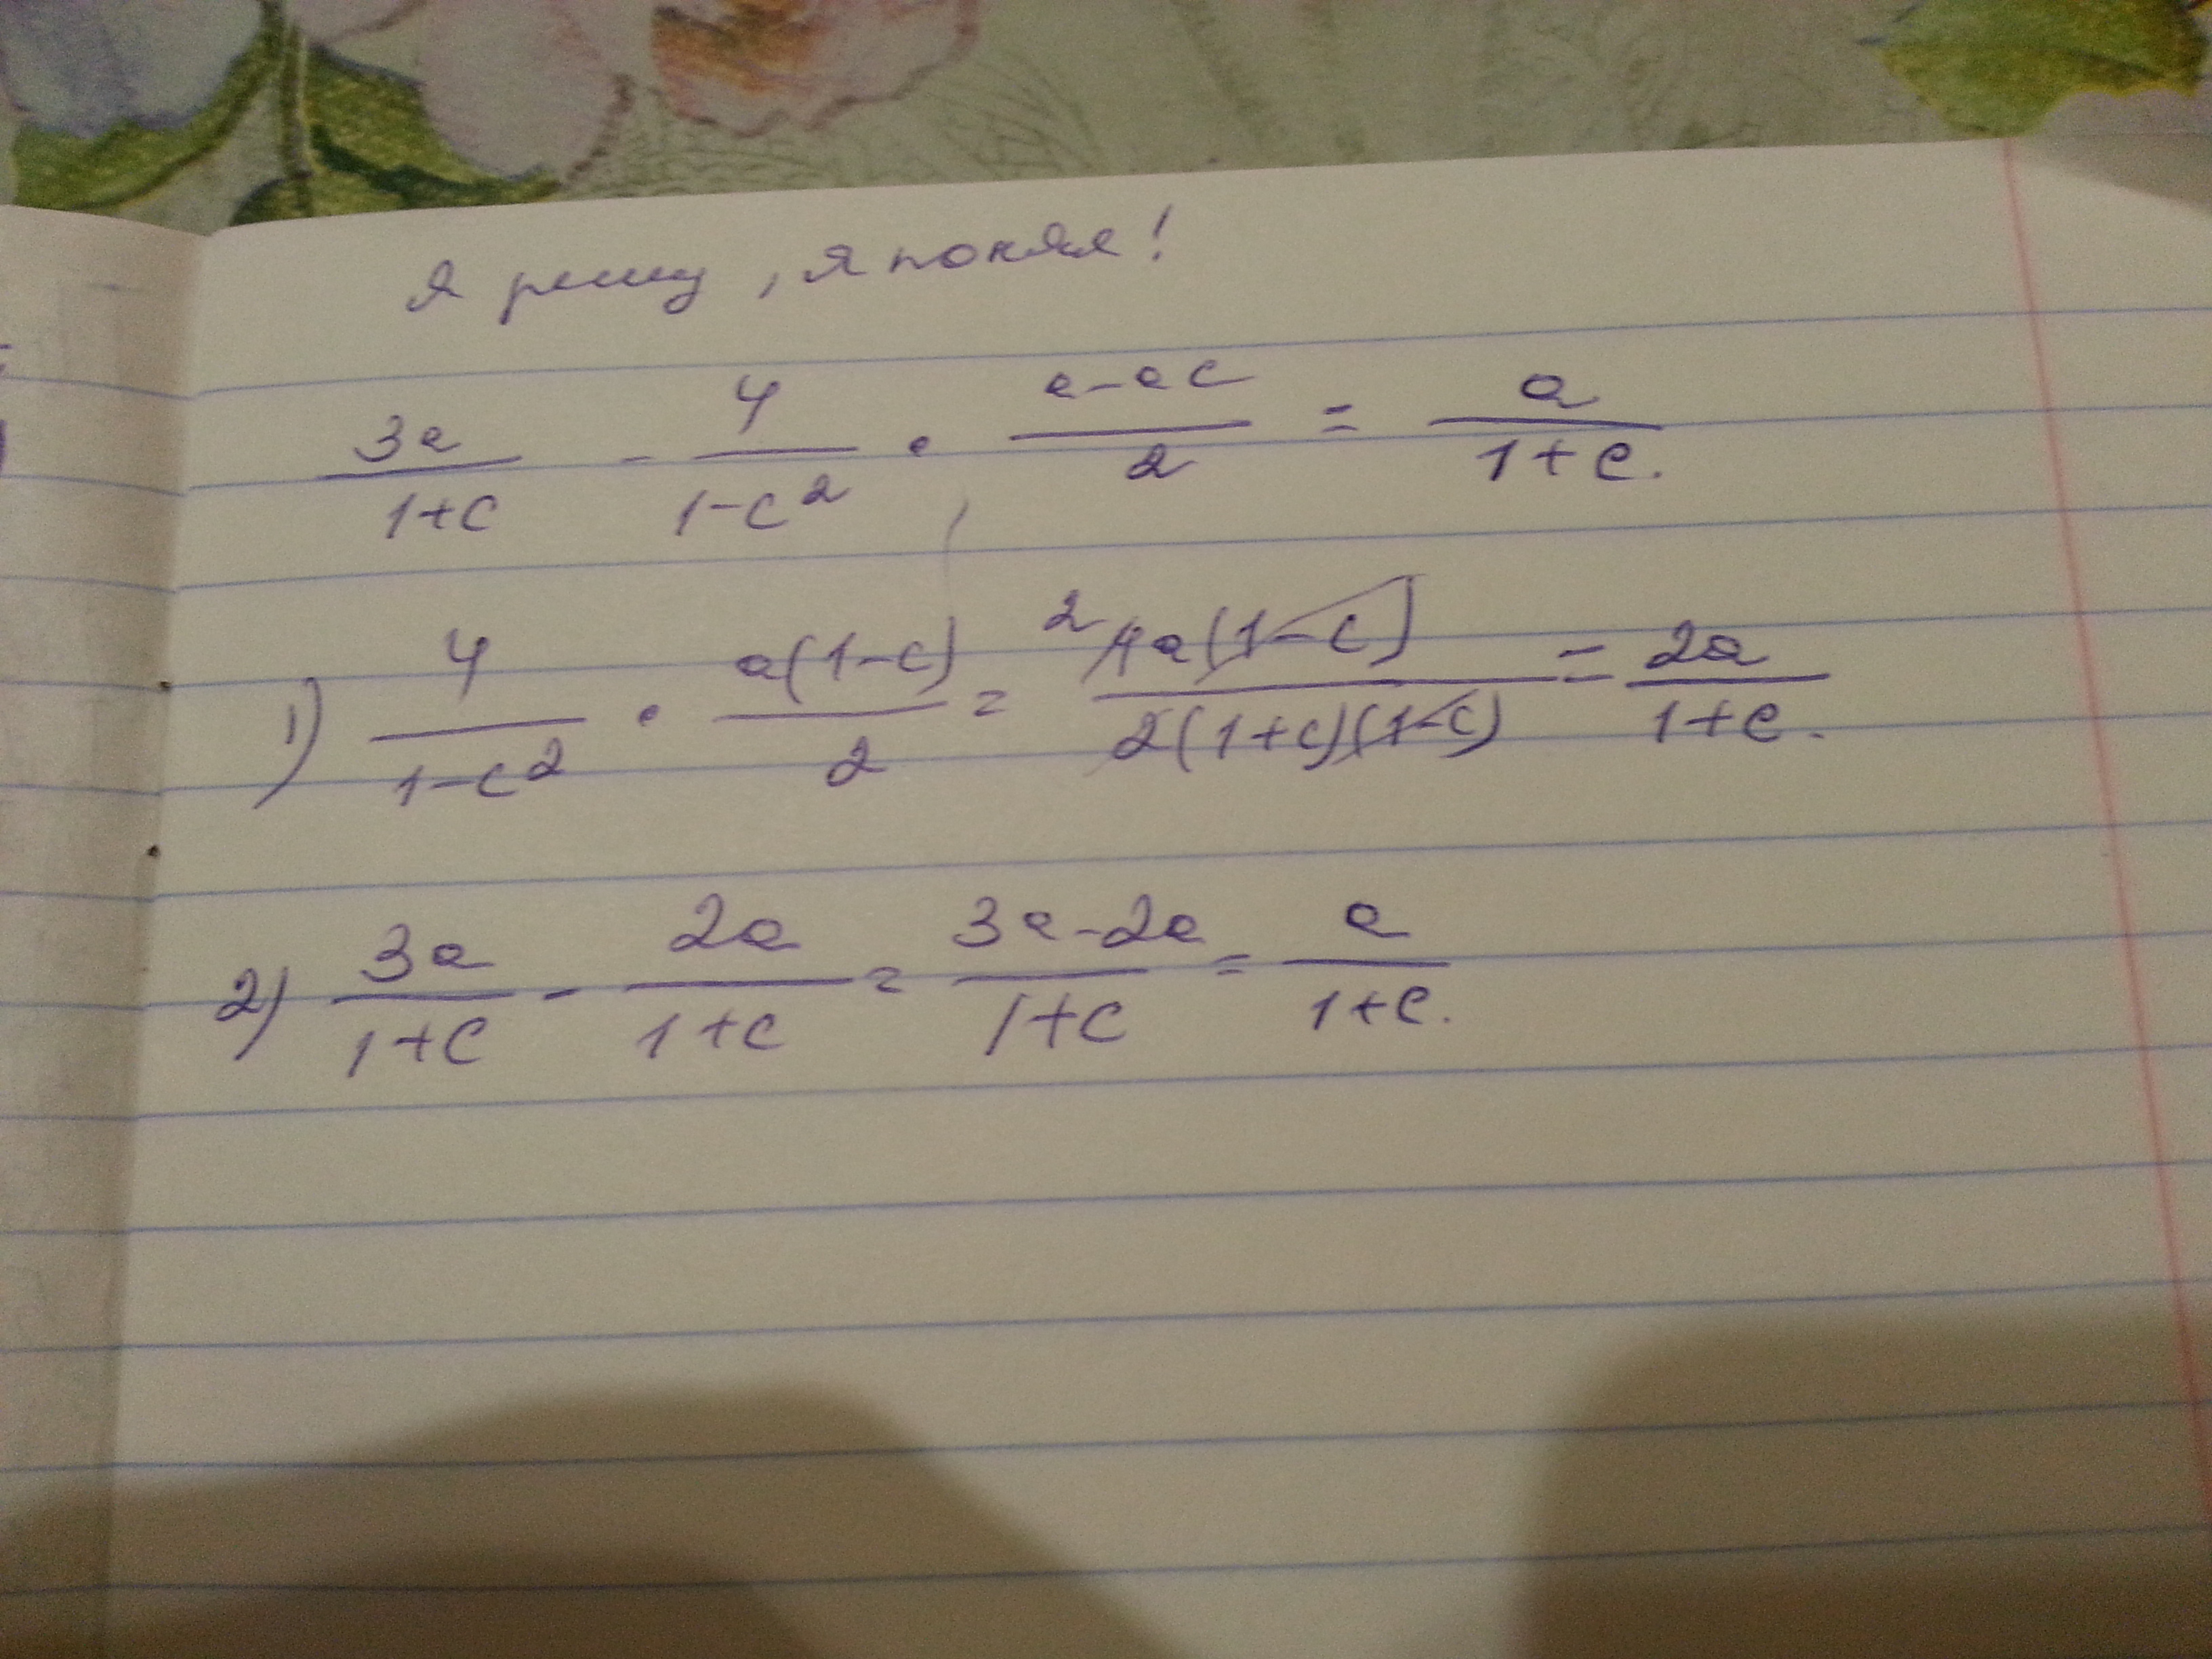 Я решу, я понял!
3a/(1+c) - 4/(1-c²) · (a-ac)/2 = a/(1+c).
1) 4/(1-c²) · a(1-c)/2 = ²4a(1-c)/(2(1+c)(1-c)) = 2a/(1+c).
2) 3a/(1+c) - 2a/(1+c) = (3a-2a)/(1+c) = a/(1+c).